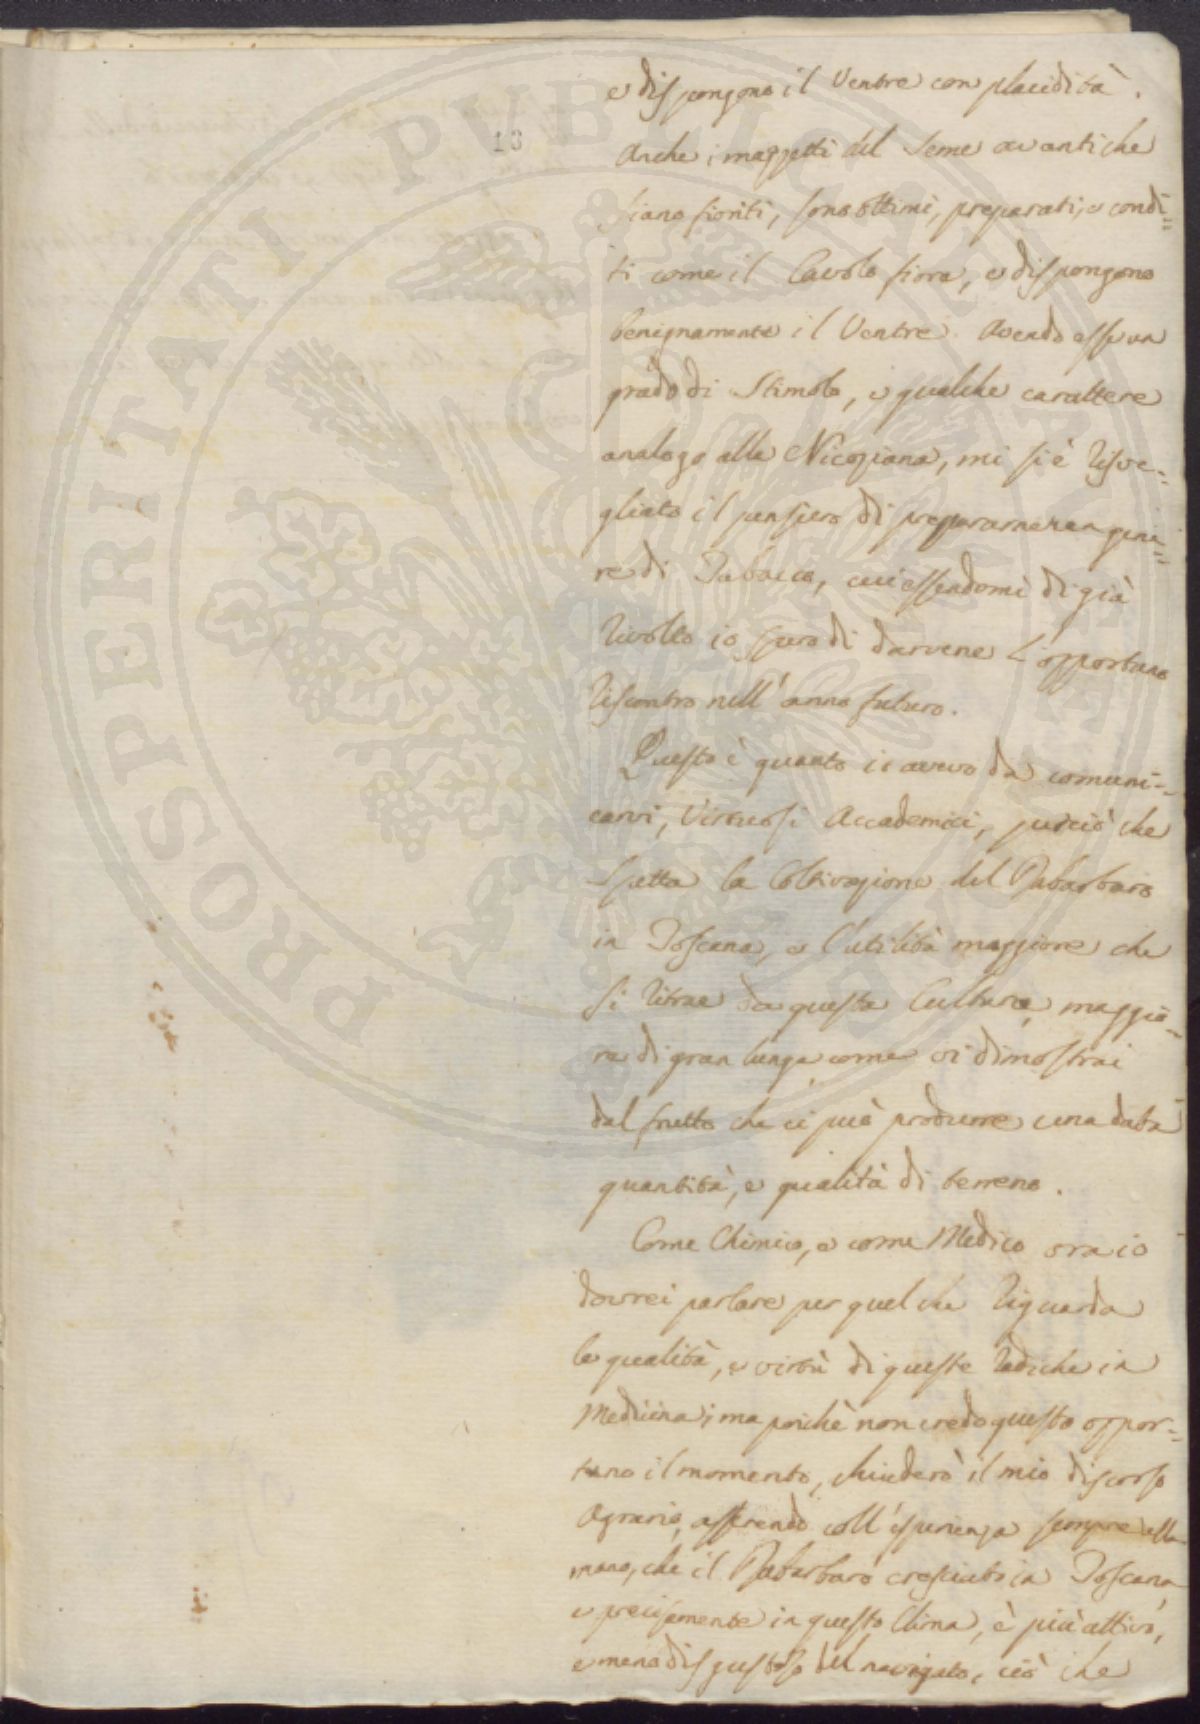 e dispongono il Ventre con placidità.
18
Anche i mazzetti del Seme avanti che
siano fioriti, sono ottimi, preparati, e condi=
ti come il Cavolo fiore, e dispongono
benignamente il Ventre. Avendo esse un
grado di Stimolo, e qualche carattere
analogo alla Nicoziana, mi si è risve=
gliato il pensiero di prepararne un gene=
re di Tabacco, cui essendomi di già
rivolto io spero di darvene l'opportuno
riscontro nell'anno futuro.
Questo è quanto io avevo da comuni=
carvi, Virtuosi Accademici, per ciò che
spetta la Coltivazione del Rabarbaro
in Toscana, e l'utilità maggiore che
si ritrae da questa Cultura, maggio=
re di gran lunga, come vi dimostrai
dal frutto che ci può produrre una data
quantità, e qualità di terreno.
Come Chimico, e come Medico ora io
dovrei parlare per quel che riguarda
le qualità, e virtù di queste radiche in
Medicina; ma poichè non credo questo oppor=
tuno il momento, chiuderò il mio discorso
Agrario, asserendo coll'esperienza sempre alla
mano, che il Rabarbaro cresciuto in Toscana
e precisamente in questo Clima, è più attivo,
e meno disgustoso del navigato, ciò che
PROSPERITATI PUBLICAE AUGENDAE